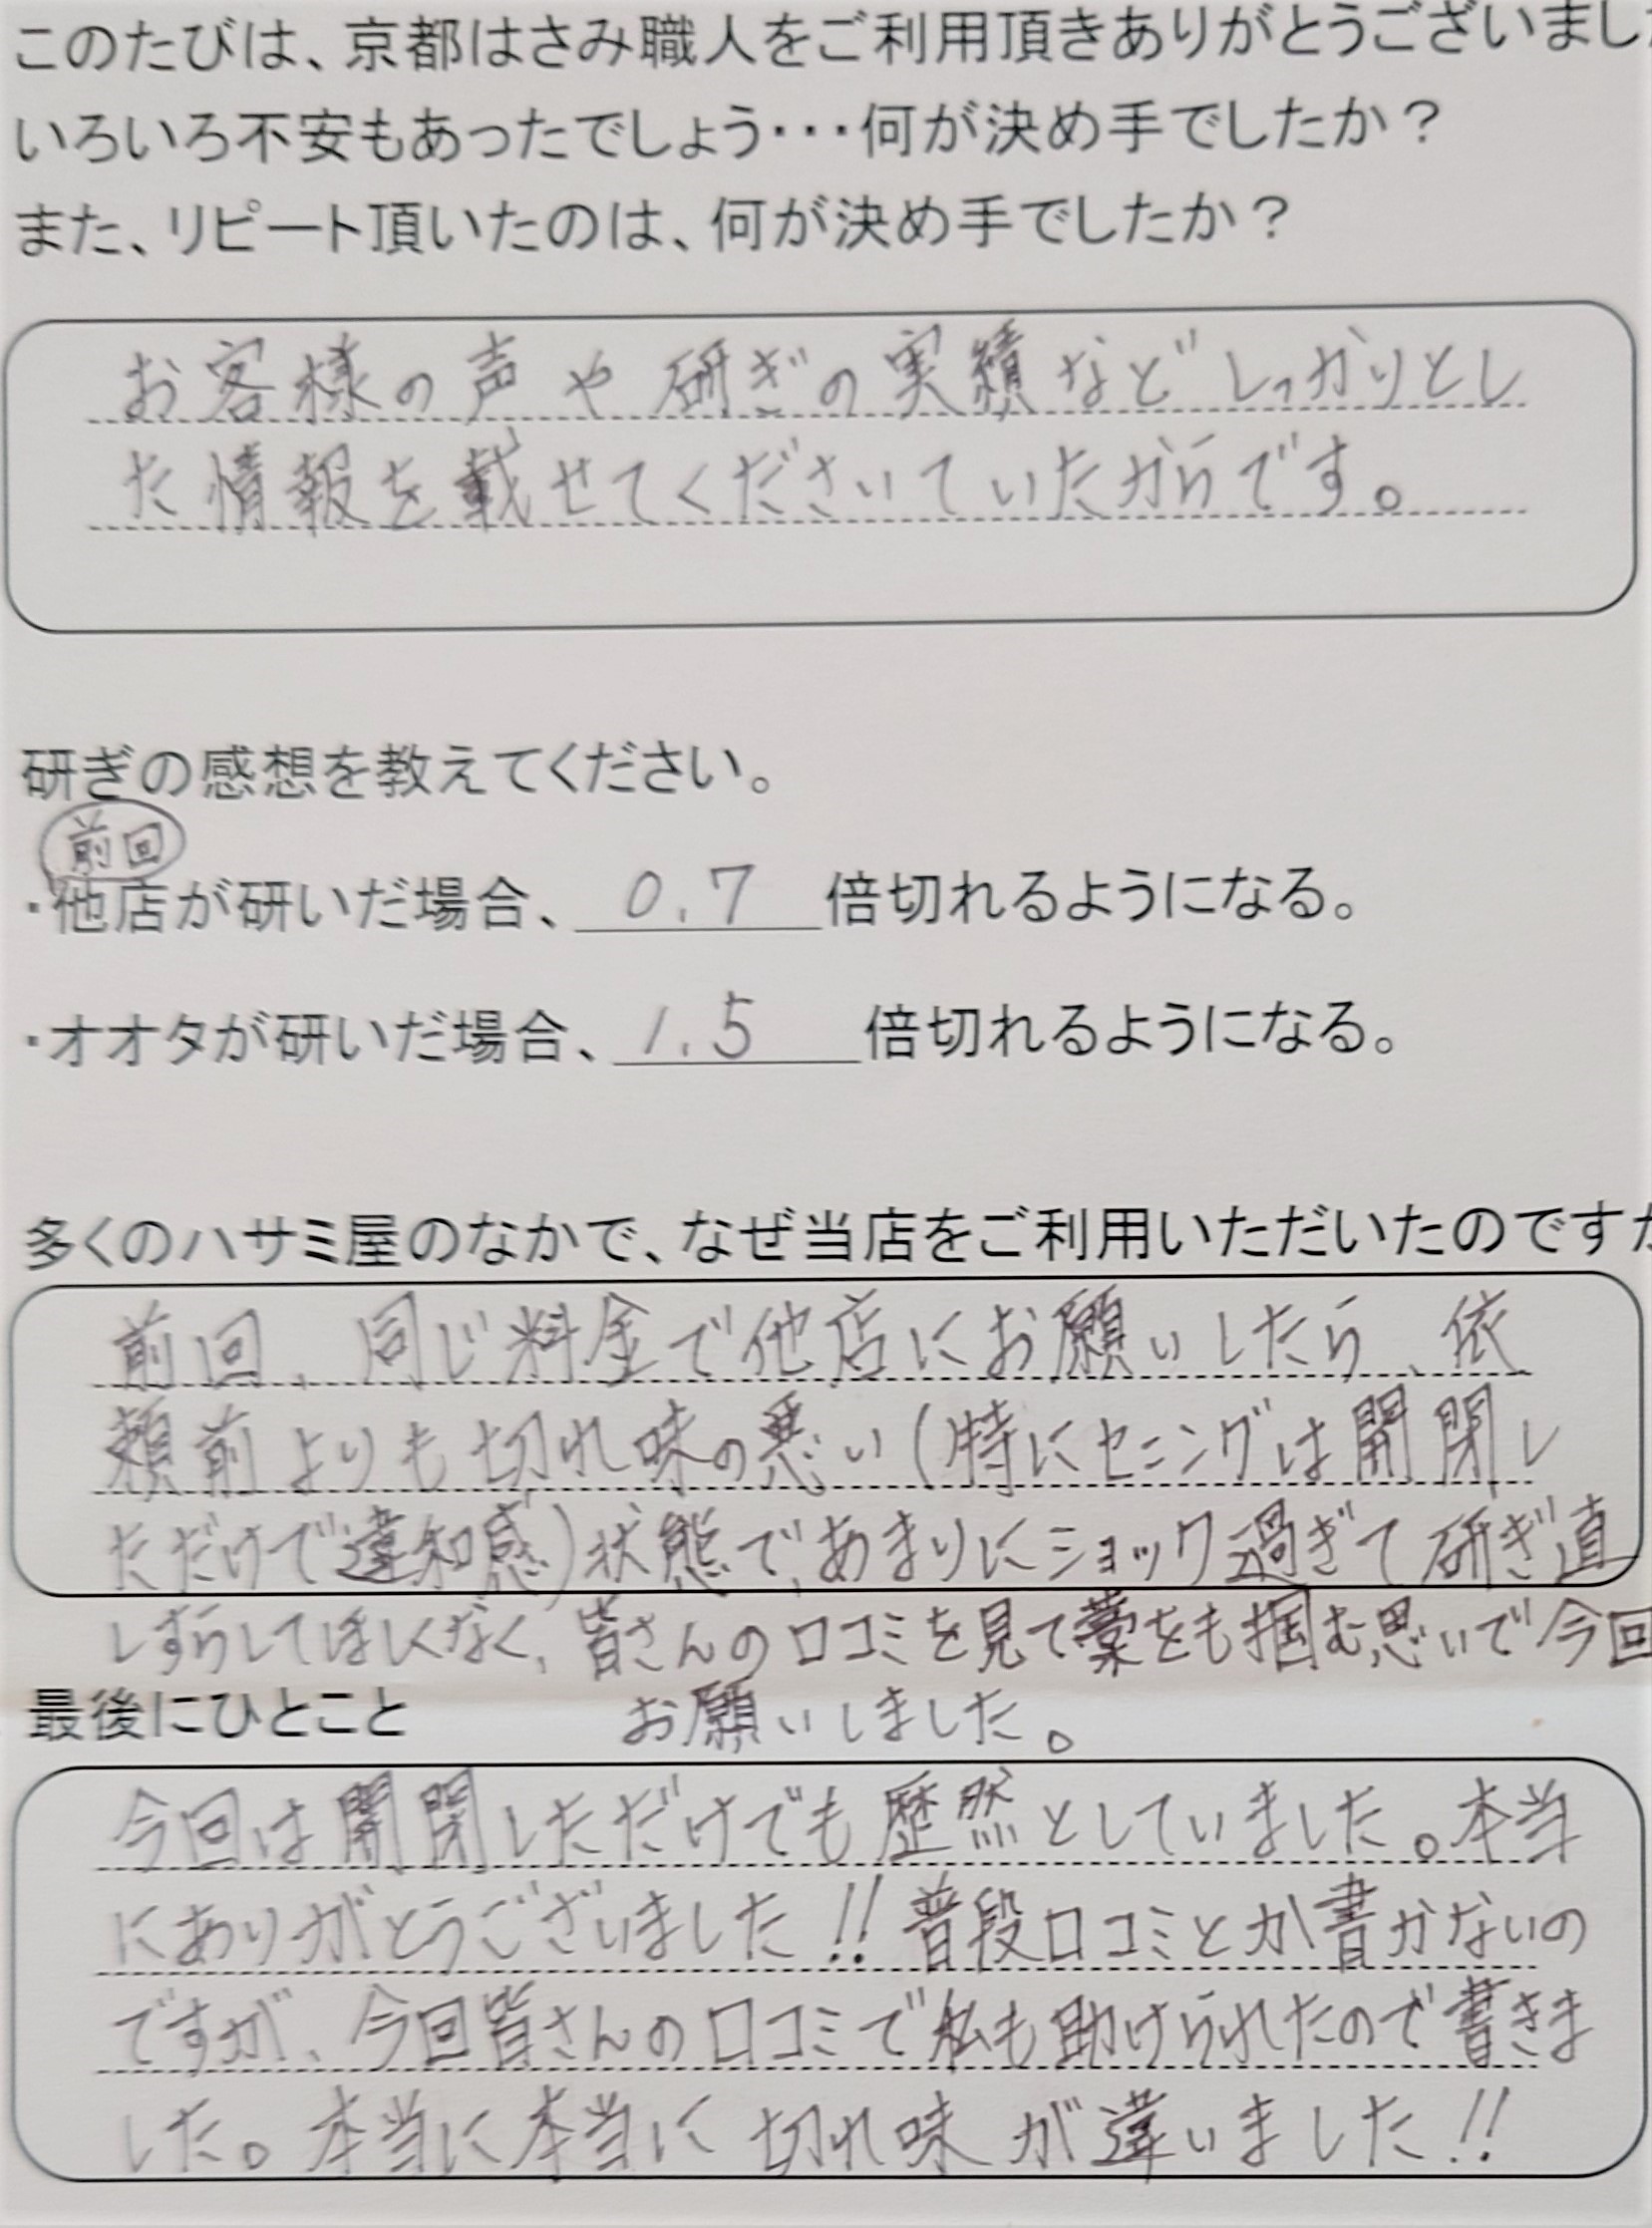 このたびは、京都はさみ職人をご利用頂きありがとうございまし
いろいろ不安もあったでしょう・・・何が決め手でしたか？
また、リピート頂いたのは、何が決め手でしたか？
お客様の声や研ぎの実績などしっかりとし
た情報を載せてくださいていたからです。
研ぎの感想を教えてください。
前回
・他店が研いだ場合、0.7倍切れるようになる。
・オオタが研いだ場合、1.5倍切れるようになる。
多くのハサミ屋のなかで、なぜ当店をご利用いただいたのですか
前回、同じ料金で他店にお願いしたら、依
頼前よりも切れ味の悪い(特にセニングは開閉し
ただけで違和感)状態で、あまりにショック過ぎて研ぎ直
しすらしてほしくなく、皆さんの口コミを見て藁をも掴む思いで今回
お願いしました。
最後にひとこと
今回は開閉しただけでも歴然としていました。本当
にありがとうございました!!普段口コミとか書かないの
ですが、今回皆さんの口コミで私も助けられたので書きま
した。本当に本当に切れ味が違いました!!